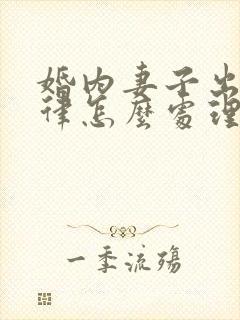 婚内妻子出
律怎麽處理
一季流殤